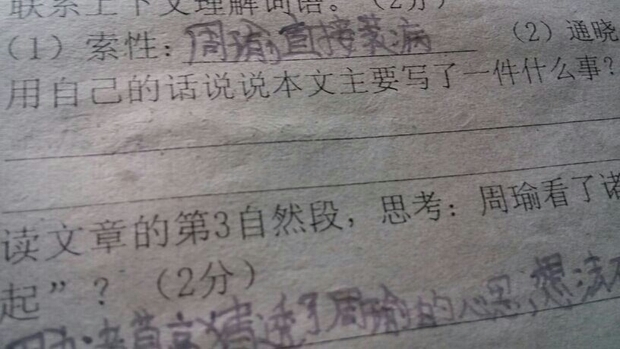 联系上下文理解词语。（2分）
（1）索性：周瑜直接装病 （2）通晓
用自己的话说说本文主要写了一件什么事？
读文章的第3自然段，思考：周瑜看了诸
起”？（2分）
猜透了周瑜的心思，想法